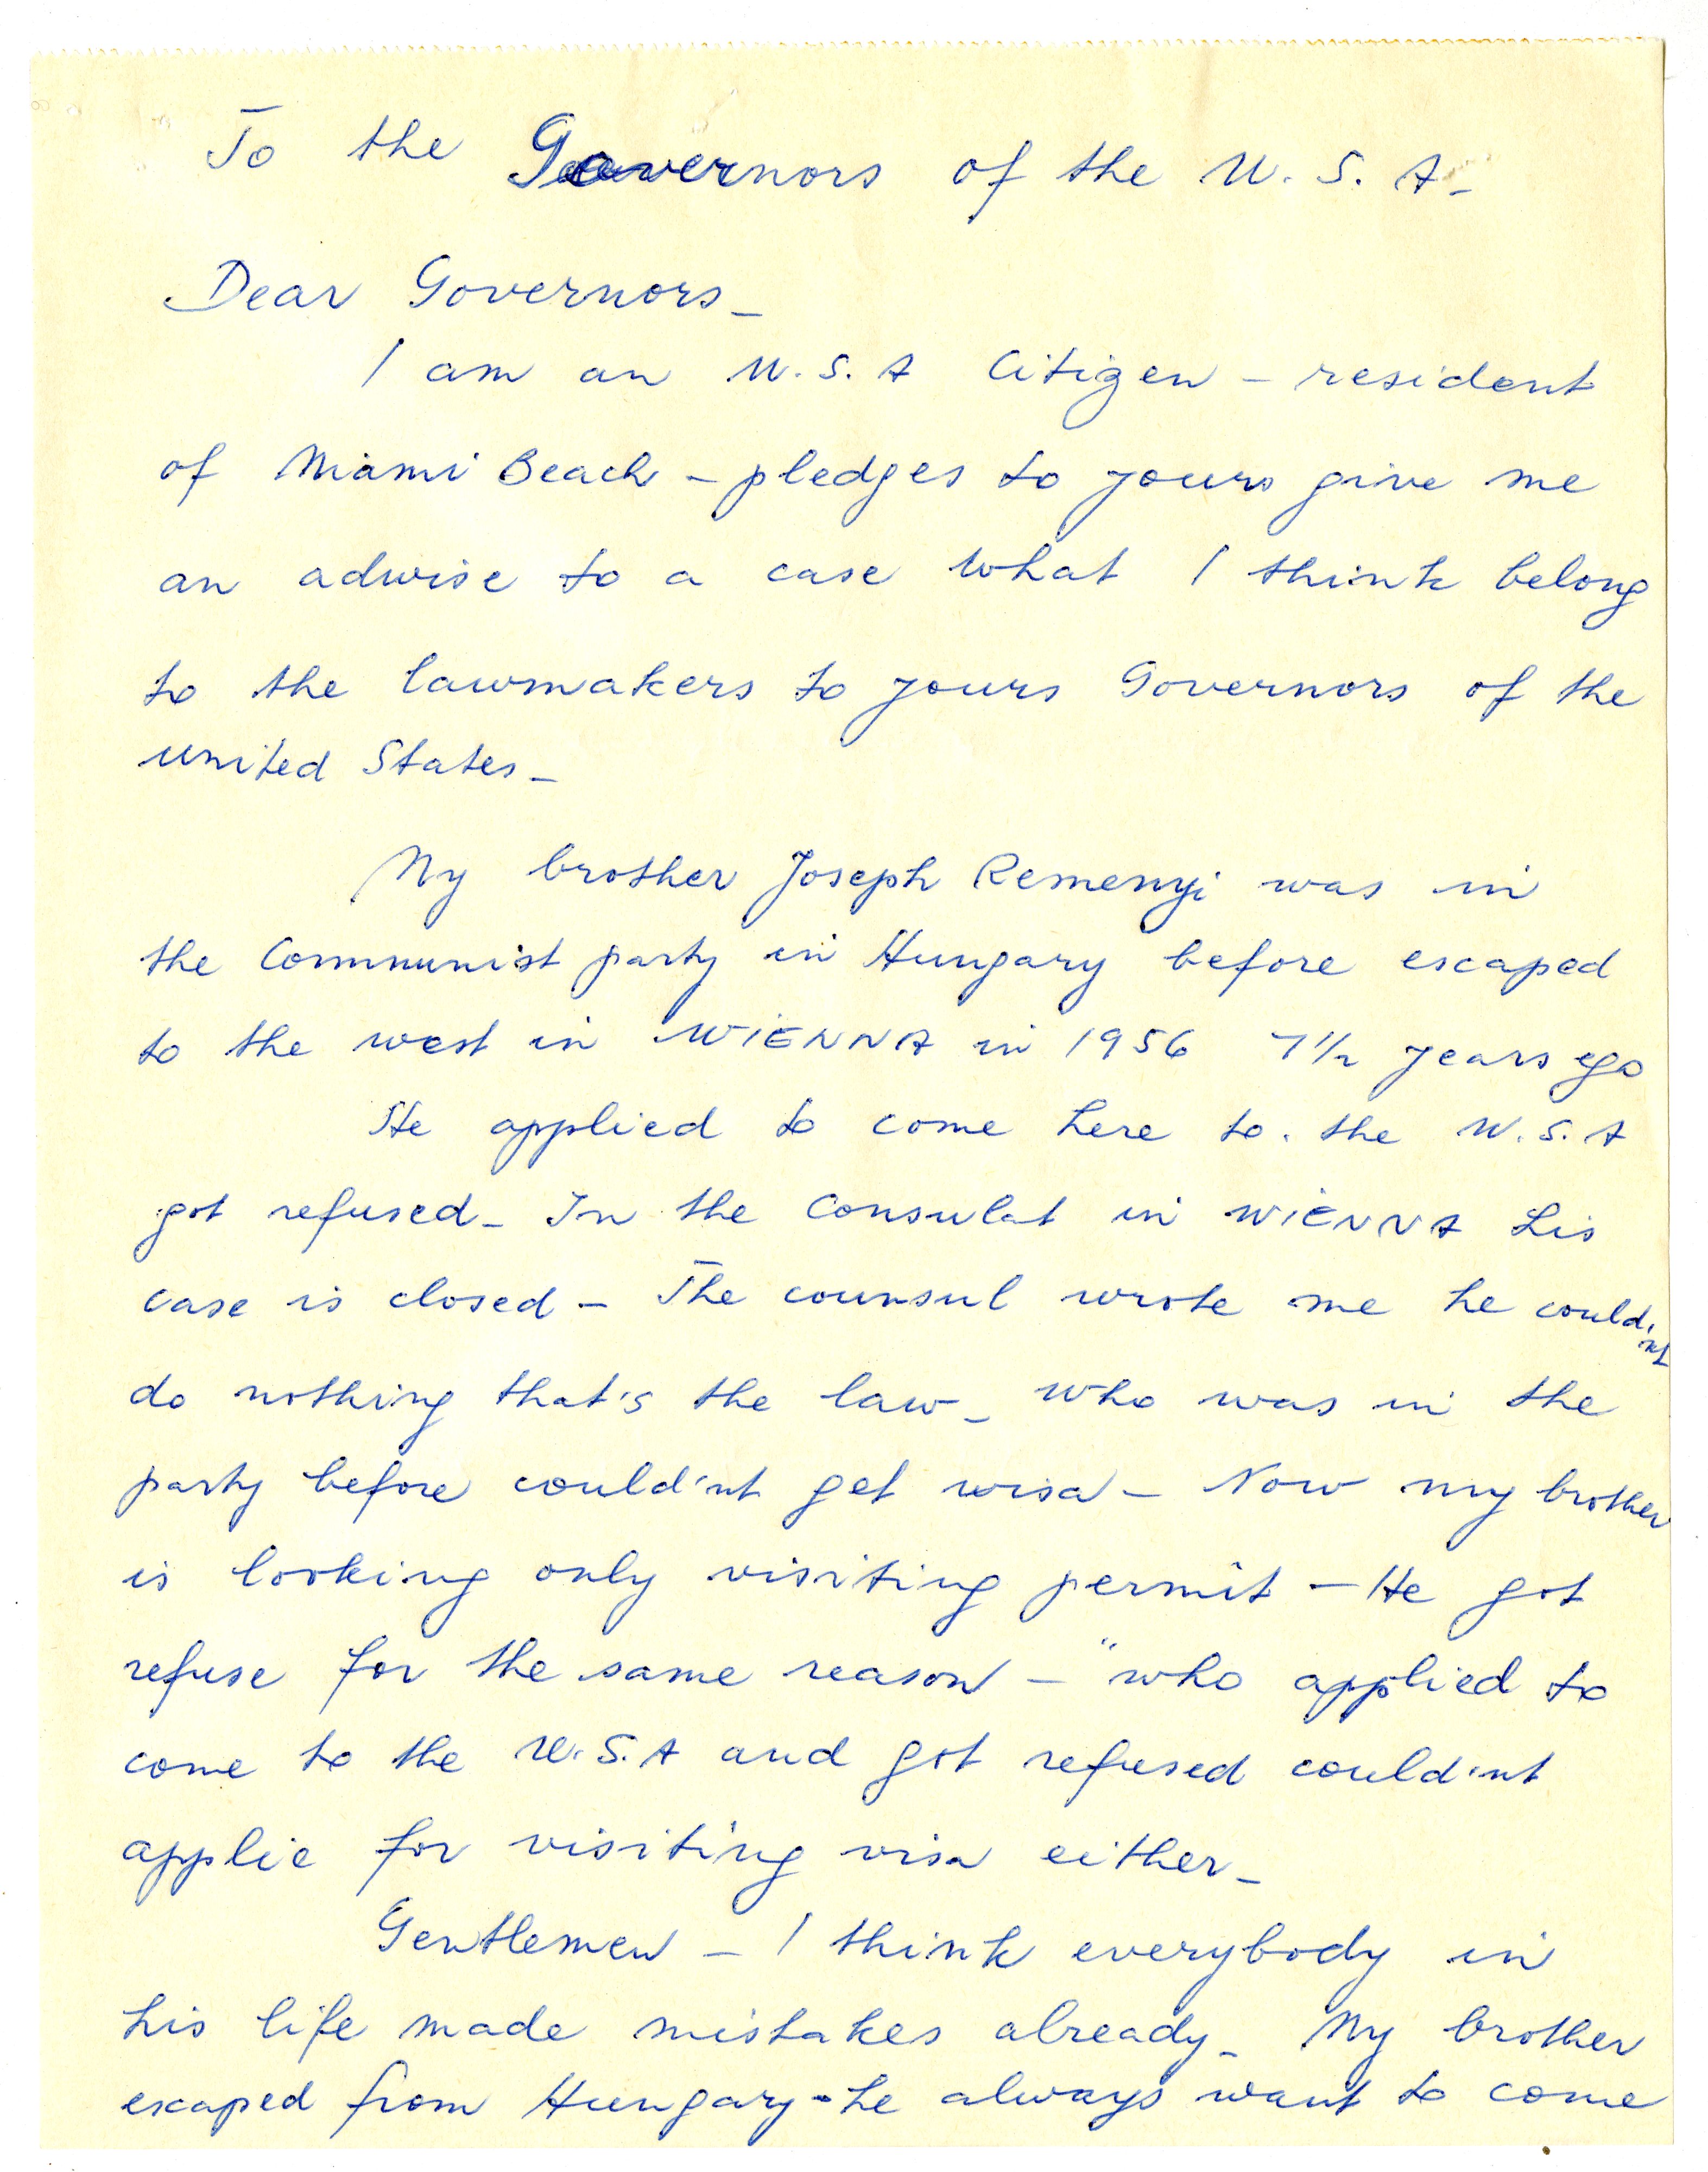 To the Governors of the U. S. A-
Dear Governors-
I am an U.S.A Citizen - resident
of Miami Beach - pledges to yours give me
an adwise to a case what I think belong
to the lawmakers to yours Governors of the
united States-
My brother Joseph Remenyi was in
the Communist party in Hungary before escaped
to the west in WIENNA in 1956 7 1/2 years ego
He applied to come here to. the U.S.A
got refused- In the Consulat in WIENNA his
case is closed - The counsul wrote me he could'nt
do nothing that's the law- who was in the
party before could'nt get wisa - Now my brother
is looking only visiting permit - He got
refuse for the same reason - "who applied to
come to the U.S.A and got refused could'nt
applie for visiting visa either-
Gentlemen - I think everybody in
his life made mistakes already- My brother
escaped from Hungary - he always want to come